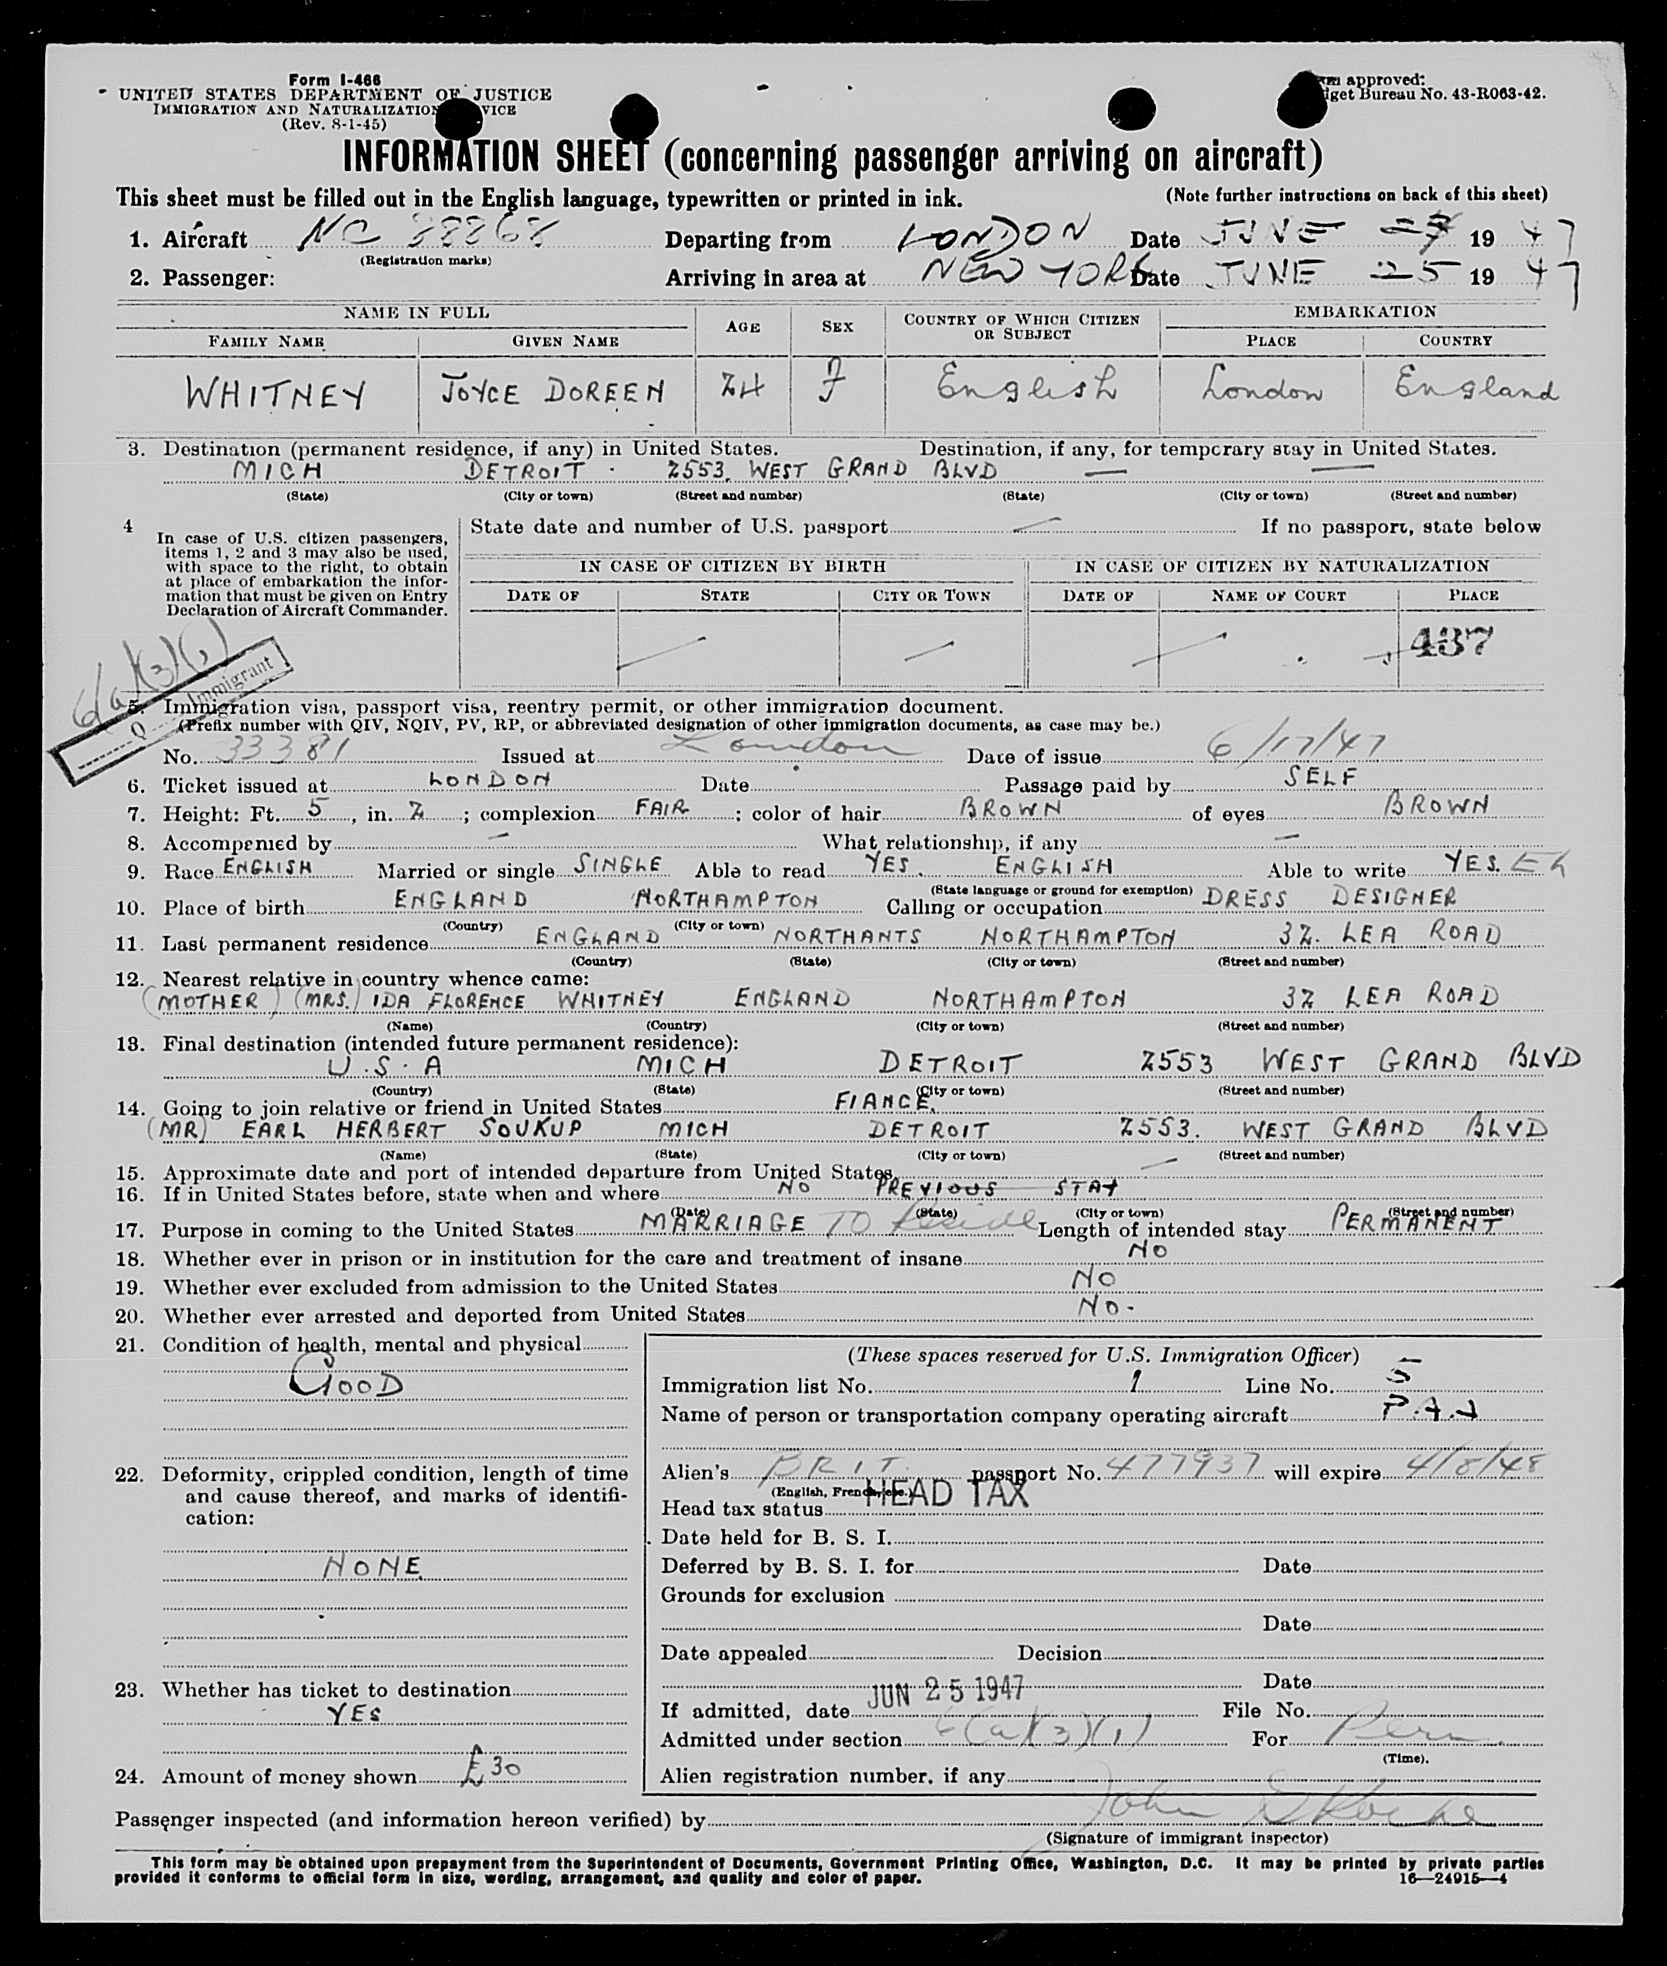 Form I-466
UNITED STATES DEPARTMENT OF JUSTICE
IMMIGRATION AND NATURALIZATION VICE
(Rev. 8-1-45)
approved:
get Bureau No. 43-R063-42.
INFORMATION SHEET (concerning passenger arriving on aircraft)
This sheet must be filled out in the English language, typewritten or printed in ink. (Note further instructions on back of this sheet)
1. Aircraft NC 88868 Departing from LONDON Date JUNE 19 47
(Registration marks)
2. Passenger: Arriving in area at NEW YORK Date JUNE 25 19 47
NAME IN FULL AGE SEX COUNTRY OF WHICH CITIZEN OR SUBJECT EMBARKATION
FAMILY NAME GIVEN NAME PLACE COUNTRY
WHITNEY JOYCE DOREEN 24 F English London England
3. Destination (permanent residence, if any) in United States. Destination, if any, for temporary stay in United States.
MICH DETROIT 2553. WEST GRAND BLVD — —
(State) (City or town) (Street and number) (State) (City or town) (Street and number)
4 In case of U.S. citizen passengers, items 1, 2 and 3 may also be used, with space to the right, to obtain at place of embarkation the information that must be given on Entry Declaration of Aircraft Commander.
State date and number of U.S. passport — If no passport, state below
IN CASE OF CITIZEN BY BIRTH IN CASE OF CITIZEN BY NATURALIZATION
DATE OF STATE CITY OR TOWN DATE OF NAME OF COURT PLACE
437
6(a)(3)(1)
Q Immigrant
5. Immigration visa, passport visa, reentry permit, or other immigration document.
(Prefix number with QIV, NQIV, PV, RP, or abbreviated designation of other immigration documents, as case may be.)
No. 33381 Issued at London Date of issue 6/17/47
6. Ticket issued at LONDON Date Passage paid by SELF
7. Height: Ft. 5, in. 2; complexion FAIR; color of hair BROWN of eyes BROWN
8. Accompenied by — What relationship, if any —
9. Race ENGLISH Married or single SINGLE Able to read YES. ENGLISH Able to write YES.
(State language or ground for exemption)
10. Place of birth ENGLAND NORTHAMPTON Calling or occupation DRESS DESIGNER
(Country) (City or town)
11. Last permanent residence ENGLAND NORTHANTS NORTHAMPTON 32. LEA ROAD
(Country) (State) (City or town) (Street and number)
12. Nearest relative in country whence came:
(MOTHER) (MRS.) IDA FLORENCE WHITNEY ENGLAND NORTHAMPTON 32 LEA ROAD
(Name) (Country) (City or town) (Street and number)
13. Final destination (intended future permanent residence):
U.S.A MICH DETROIT 2553 WEST GRAND BLVD
(Country) (State) (City or town) (Street and number)
14. Going to join relative or friend in United States FIANCE.
(MR) EARL HERBERT SOUKUP MICH DETROIT 2553. WEST GRAND BLVD
(Name) (State) (City or town) (Street and number)
15. Approximate date and port of intended departure from United States —
16. If in United States before, state when and where NO PREVIOUS STAY
(Date) (State) (City or town) (Street and number)
17. Purpose in coming to the United States MARRIAGE TO Reside Length of intended stay PERMANENT
18. Whether ever in prison or in institution for the care and treatment of insane NO
19. Whether ever excluded from admission to the United States NO
20. Whether ever arrested and deported from United States NO.
21. Condition of health, mental and physical
GOOD
22. Deformity, crippled condition, length of time and cause thereof, and marks of identification:
NONE
23. Whether has ticket to destination
YES
24. Amount of money shown £30
(These spaces reserved for U.S. Immigration Officer)
Immigration list No. 1 Line No. 5
Name of person or transportation company operating aircraft P.A.A
Alien's BRIT. passport No. 477937 will expire 4/8/48
(English, French, etc.)
Head tax status HEAD TAX
Date held for B. S. I.
Deferred by B. S. I. for Date
Grounds for exclusion
Date
Date appealed Decision
Date
If admitted, date JUN 25 1947 File No.
Admitted under section 6(a)(3)(1) For Perm.
(Time).
Alien registration number, if any
Passenger inspected (and information hereon verified) by John
(Signature of immigrant inspector)
This form may be obtained upon prepayment from the Superintendent of Documents, Government Printing Office, Washington, D.C. It may be printed by private parties
provided it conforms to official form in size, wording, arrangement, and quality and color of paper. 16—24915—4